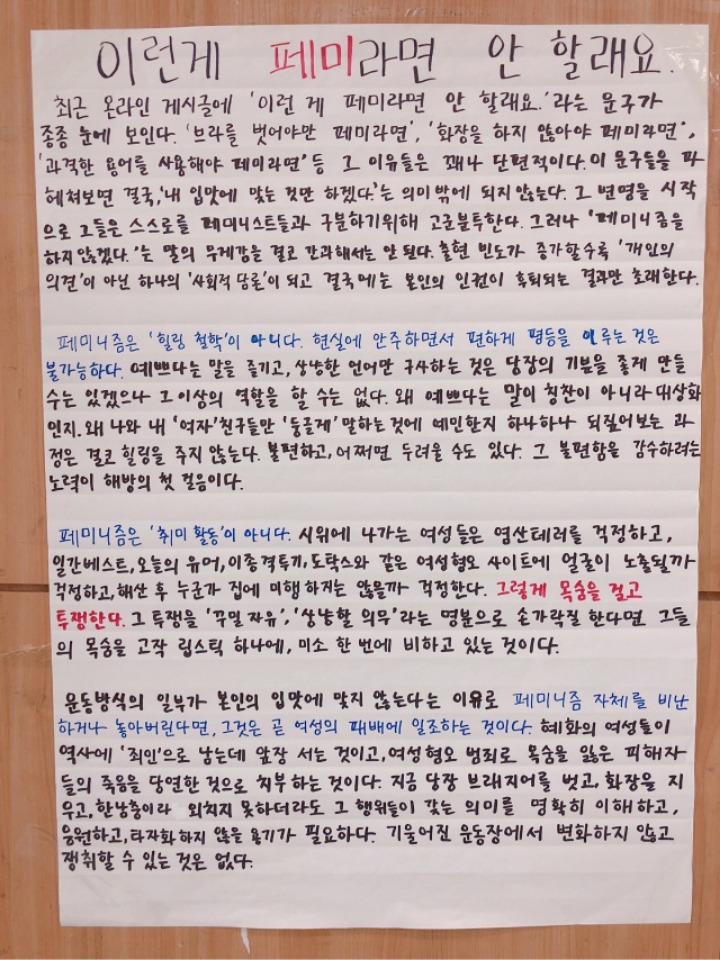 이런게 페미라면 안 할래요.
최근 온라인 게시글에 '이런 게 페미라면 안 할래요.'라는 문구가
종종 눈에 보인다. '브라를 벗어야만 페미라면', '화장을 하지 않아야 페미라면',
'과격한 용어를 사용해야 페미라면' 등 그 이유들은 꽤나 단편적이다. 이 문구들을 파
헤쳐보면 결국, '내 입맛에 맞는 것만 하겠다.'는 의미밖에 되지 않는다. 그 변명을 시작
으로 그들은 스스로를 페미니스트들과 구분하기위해 고군분투한다. 그러나 '페미니즘을
하지 않겠다.'는 말의 무게감을 결코 간과해서는 안 된다. 출현 빈도가 증가할수록 '개인의
의견'이 아닌 하나의 '사회적 담론'이 되고 결국에는 본인의 인권이 후퇴되는 결과만 초래한다.
페미니즘은 '힐링 철학'이 아니다. 현실에 안주하면서 편하게 평등을 이루는 것은
불가능하다. 예쁘다는 말을 즐기고, 상냥한 언어만 구사하는 것은 당장의 기분을 좋게 만들
수는 있겠으나 그 이상의 역할을 할 수는 없다. 왜 예쁘다는 말이 칭찬이 아니라 대상화
인지. 왜 나와 내 '여자'친구들만 '둥글게' 말하는것에 예민한지 하나하나 되짚어보는 과
정은 결코 힐링을 주지 않는다. 불편하고, 어쩌면 두려울 수도 있다. 그 불편함을 감수하려는
노력이 해방의 첫 걸음이다.
페미니즘은 '취미 활동'이 아니다. 시위에 나가는 여성들은 염산테러를 걱정하고,
일간베스트, 오늘의 유머, 이종격투기, 도탁스와 같은 여성혐오 사이트에 얼굴이 노출될까
걱정하고, 해산 후 누군가 집에 미행하지는 않을까 걱정한다. 그렇게 목숨을 걸고
투쟁한다. 그 투쟁을 '꾸밀 자유', '상냥할 의무'라는 명분으로 손가락질 한다면 그들
의 목숨을 고작 립스틱 하나에, 미소 한 번에 비하고 있는 것이다.
운동방식의 일부가 본인의 입맛에 맞지 않는다는 이유로 페미니즘 자체를 비난
하거나 놓아버린다면, 그것은 곧 여성의 패배에 일조하는 것이다. 혜화의 여성들이
역사에 '죄인'으로 남는데 앞장 서는 것이고, 여성혐오 범죄로 목숨을 잃은 피해자
들의 죽음을 당연한 것으로 치부하는 것이다. 지금 당장 브래지어를 벗고, 화장을 지
우고, 한남충이라 외치지 못하더라도 그 행위들이 갖는 의미를 명확히 이해하고,
응원하고, 타자화하지 않을 용기가 필요하다. 기울어진 운동장에서 변화하지 않고
쟁취할 수 있는 것은 없다.